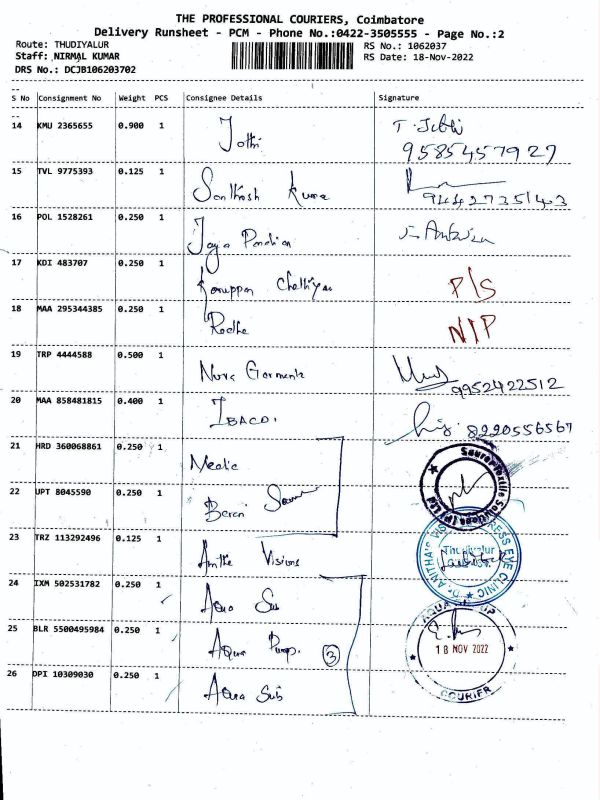 THE PROFESSIONAL COURIERS, Coimbatore
Delivery Runsheet - PCM - Phone No.:0422-3505555 - Page No.:2
Route: THUDIYALUR RS No.: 1062037
Staff: NIRMAL KUMAR RS Date: 18-Nov-2022
DRS No.: DCJB106203702
S No Consignment No Weight PCS Consignee Details Signature
14 KMU 2365655 0.900 1 Jothi
9585457927
15 TVL 9775393 0.125 1 Santhosh Kumar
9442735143
16 POL 1528261 0.250 1 Jaya Pandian
17 KDI 483707 0.250 1 Karuppan Chettiyar P/S
18 MAA 295344385 0.250 1 Radha N/P
19 TRP 4444588 0.500 1 Nura Garments
9952422512
20 MAA 858481815 0.400 1 IBACO. 8220556567
21 HRD 360068861 0.250 1
22 UPT 8045590 0.250 1
23 TRZ 113292496 0.125 1 Anitha Visions
24 IXM 502531782 0.250 1 Aqua Sub
25 BLR 5500495984 0.250 1 Aqua Pump. 3
26 DPI 10309030 0.250 1 Aqua Sub
Thudiyalur
EYE CLINIC
18 NOV 2022
COURIER